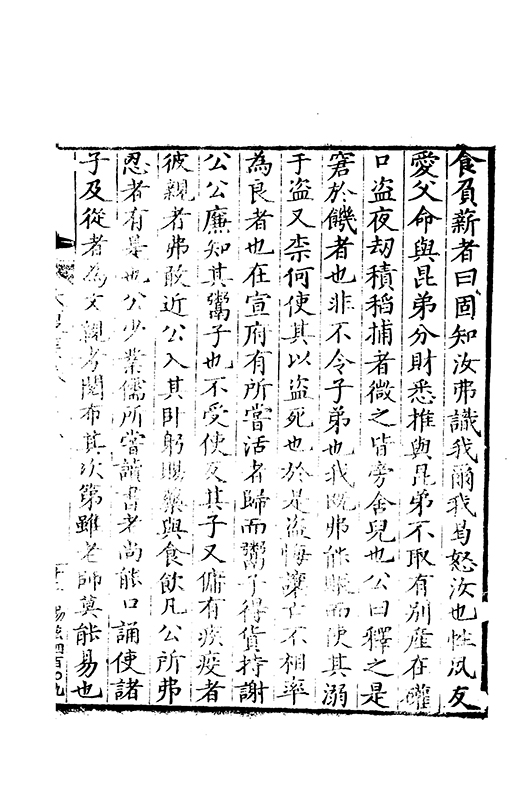 食負薪者曰固知汝弗識我爾我曷怒汝也性夙友
愛父命與昆弟分財悉推與昆弟不取有別產在礶
口盜夜刼積稻捕者微之皆旁舍兒也公曰釋之是
窘於饑者也非不令子弟也我既弗能賑而使其溺
于盜又柰何使其以盜死也於是盜悔讓亡不相率
為良者也在宣府有所嘗活者歸而鬻子得貨持謝
公公廉知其鬻子也不受使反其子又傭有疾疫者
彼親者弗敢近公入其卧躬賜藥與食飲凡公所弗
忍者有是也公少業儒所嘗讀書老尚能口誦使諸
子及從者為文親考閱布其次第雖老師莫能易也